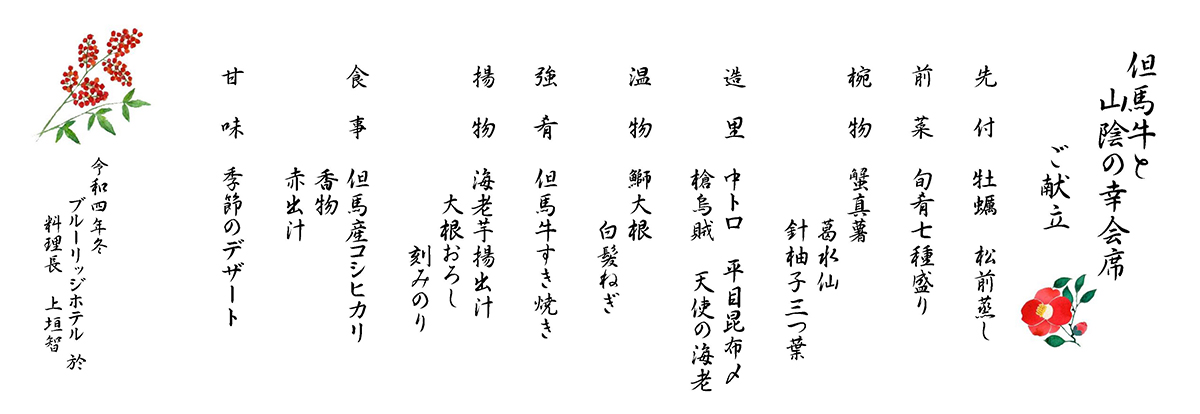 但馬牛と
山陰の幸会席
ご献立
先付 牡蠣 松前蒸し
前菜 旬肴七種盛り
椀物 蟹真薯
葛水仙
針柚子三つ葉
造里 中トロ 平目昆布〆
槍烏賊 天使の海老
温物 鰤大根
白髪ねぎ
強肴 但馬牛すき焼き
揚物 海老芋揚出汁
大根おろし
刻みのり
食事 但馬産コシヒカリ
香物
赤出汁
甘味 季節のデザート
令和四年冬
ブルーリッジホテル 於
料理長 上垣智